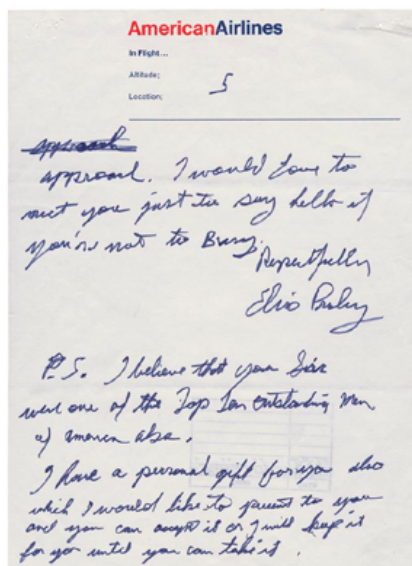 AmericanAirlines
In Flight...
Altitude;
Location;
5
approach
approach. I would love to
meet you just to say hello if
you're not to Busy.
Respectfully
Elvis Presley
P.S. I believe that you Sir
were one of the Top Ten outstanding men
of America also.
I have a personal gift for you also
which I would like to present to you
and you can accept it or I will keep it
for you until you can take it.